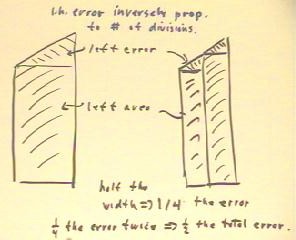 l.h. error inversely prop.
to # of divisions.
left error
left area
half the
width => 1/4 the error
1/4 the error twice => 1/2 the total error.